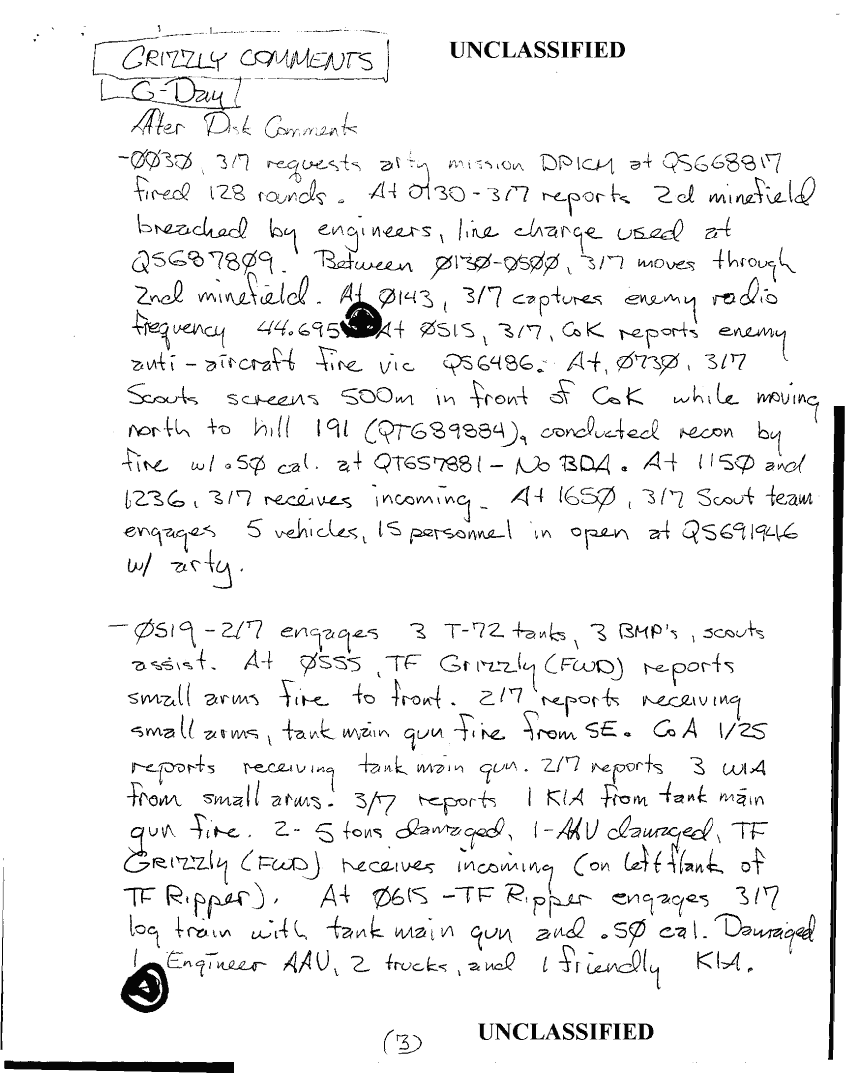 GRIZZLY COMMENTS UNCLASSIFIED
G-Day
After Disk Comments
-ØØ3Ø, 3/7 requests arty mission DPICM at QS668817
fired 128 rounds. At 0130 - 3/7 reports 2d minefield
breached by engineers, line charge used at
QS687809. Between Ø13Ø-Ø5ØØ, 3/7 moves through
2nd minefield. At Ø143, 3/7 captures enemy radio
frequency 44.695 At Ø515, 3/7, CoK reports enemy
anti-aircraft fire vic QS6486. At, Ø73Ø, 3/7
Scouts screens 500m in front of CoK while moving
north to hill 191 (QT689884), conducted recon by
fire w/ .5Ø cal. at QT657881 - No BDA. At 115Ø and
1236, 3/7 receives incoming. At 165Ø, 3/7 Scout team
engages 5 vehicles, 15 personnel in open at QS691946
w/ arty.
- Ø519 - 2/7 engages 3 T-72 tanks, 3 BMP's, scouts
assist. At Ø555, TF Grizzly (FWD) reports
small arms fire to front. 2/7 reports receiving
small arms, tank main gun fire from SE. Co A 1/25
reports receiving tank main gun. 2/7 reports 3 WIA
from small arms. 3/7 reports 1 KIA from tank main
gun fire. 2-5 tons damaged, 1-AAV damaged, TF
GRIZZLY (FWD) receives incoming (on left flank of
TF Ripper). At Ø615 - TF Ripper engages 3/7
log train with tank main gun and .5Ø cal. Damaged
1 Engineer AAV, 2 trucks, and 1 friendly KIA.
(3) UNCLASSIFIED